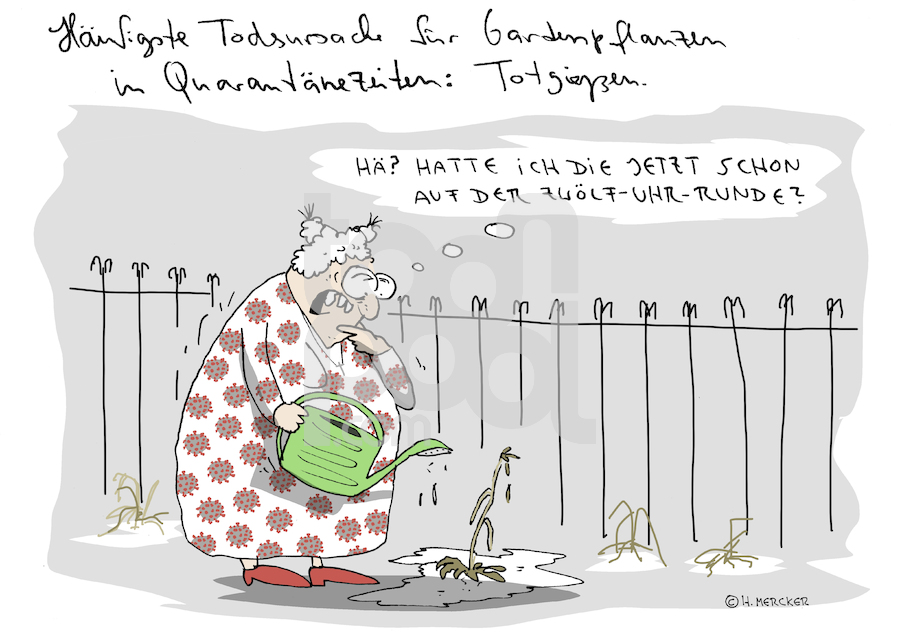 Häufigste Todsursache für Gartenpflanzen
in Quarantänezeiten: Totgießen.
HÄ? HATTE ICH DIE JETZT SCHON
AUF DER ZWÖLF-UHR-RUNDE?
toonpool
.com
© H. MERCKER